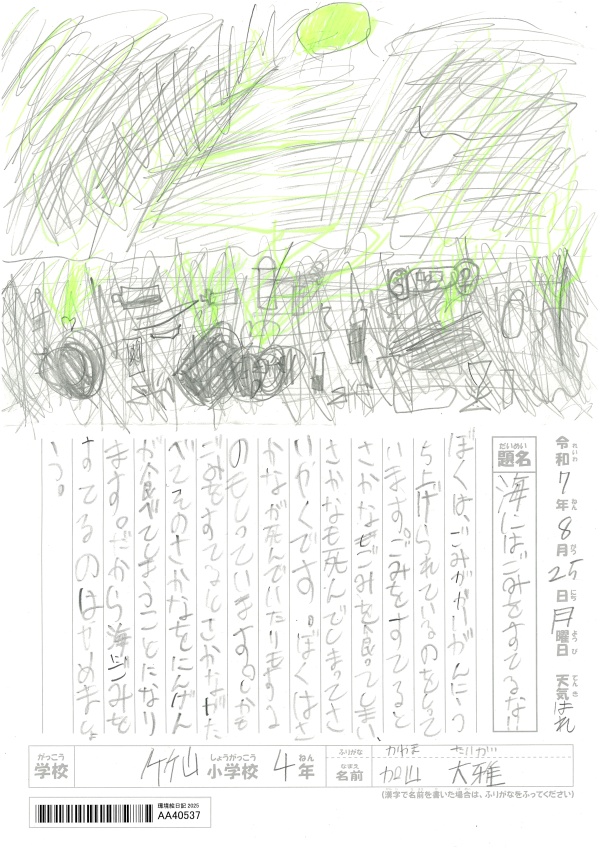 令和7年8月25日月曜日 天気はれ
れいわ ねん がつ にち ようび てんき
だいめい
題名 海にはごみをすてるな!!
ぼくは、ごみがかいがんにう
ちよげられているのをしって
います。ごみをすてると
さかながごみを食ってしまい、
さかなも死んでしまってさ
いかくです。ぼくはさ
かなが死んでいたりもする
のもしっています。しかも
ごみをすてるとさかながた
べてそのさかなをにんげん
が食べてしまうことになり
ます。だから海にごみを
すてるのはやめましょ
う。
がっこう しょうがっこう ねん
学校 竹山小学校 4年
ふりがな かやま たいが
なまえ
名前 加山 大雅
(漢字で名前を書いた場合は、ふりがなをふってください)
環境絵日記 2025
AA40537